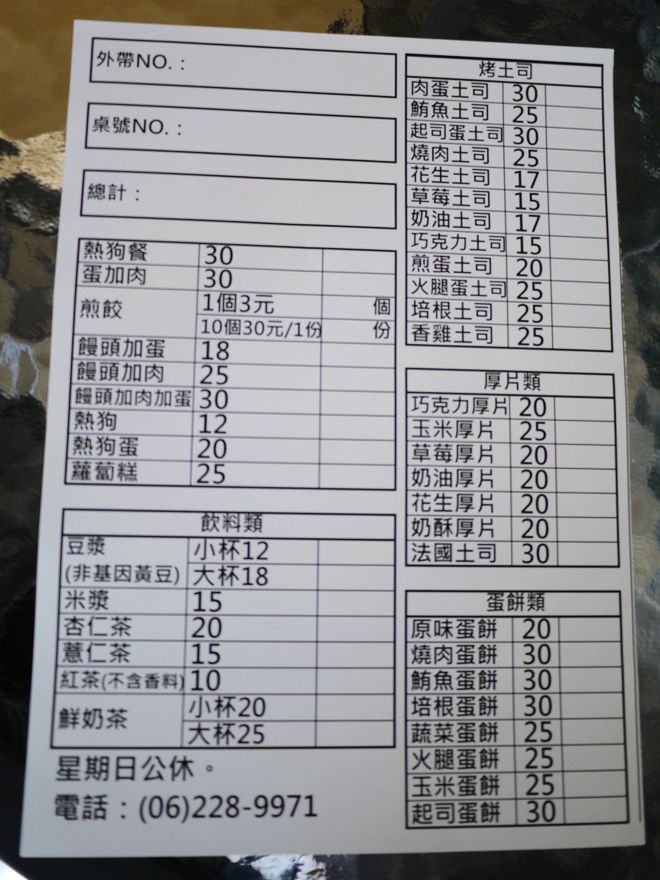 外帶NO.：
桌號NO.：
總計：
熱狗餐 30
蛋加肉 30
煎餃 1個3元 個
10個30元/1份 份
饅頭加蛋 18
饅頭加肉 25
饅頭加肉加蛋 30
熱狗 12
熱狗蛋 20
蘿蔔糕 25
飲料類
豆漿 小杯12
(非基因黃豆) 大杯18
米漿 15
杏仁茶 20
薏仁茶 15
紅茶(不含香料) 10
鮮奶茶 小杯20
大杯25
星期日公休。
電話：(06)228-9971
烤土司
肉蛋土司 30
鮪魚土司 25
起司蛋土司 30
燒肉土司 25
花生土司 17
草莓土司 15
奶油土司 17
巧克力土司 15
煎蛋土司 20
火腿蛋土司 25
培根土司 25
香雞土司 25
厚片類
巧克力厚片 20
玉米厚片 25
草莓厚片 20
奶油厚片 20
花生厚片 20
奶酥厚片 20
法國土司 30
蛋餅類
原味蛋餅 20
燒肉蛋餅 30
鮪魚蛋餅 30
培根蛋餅 30
蔬菜蛋餅 25
火腿蛋餅 25
玉米蛋餅 25
起司蛋餅 30